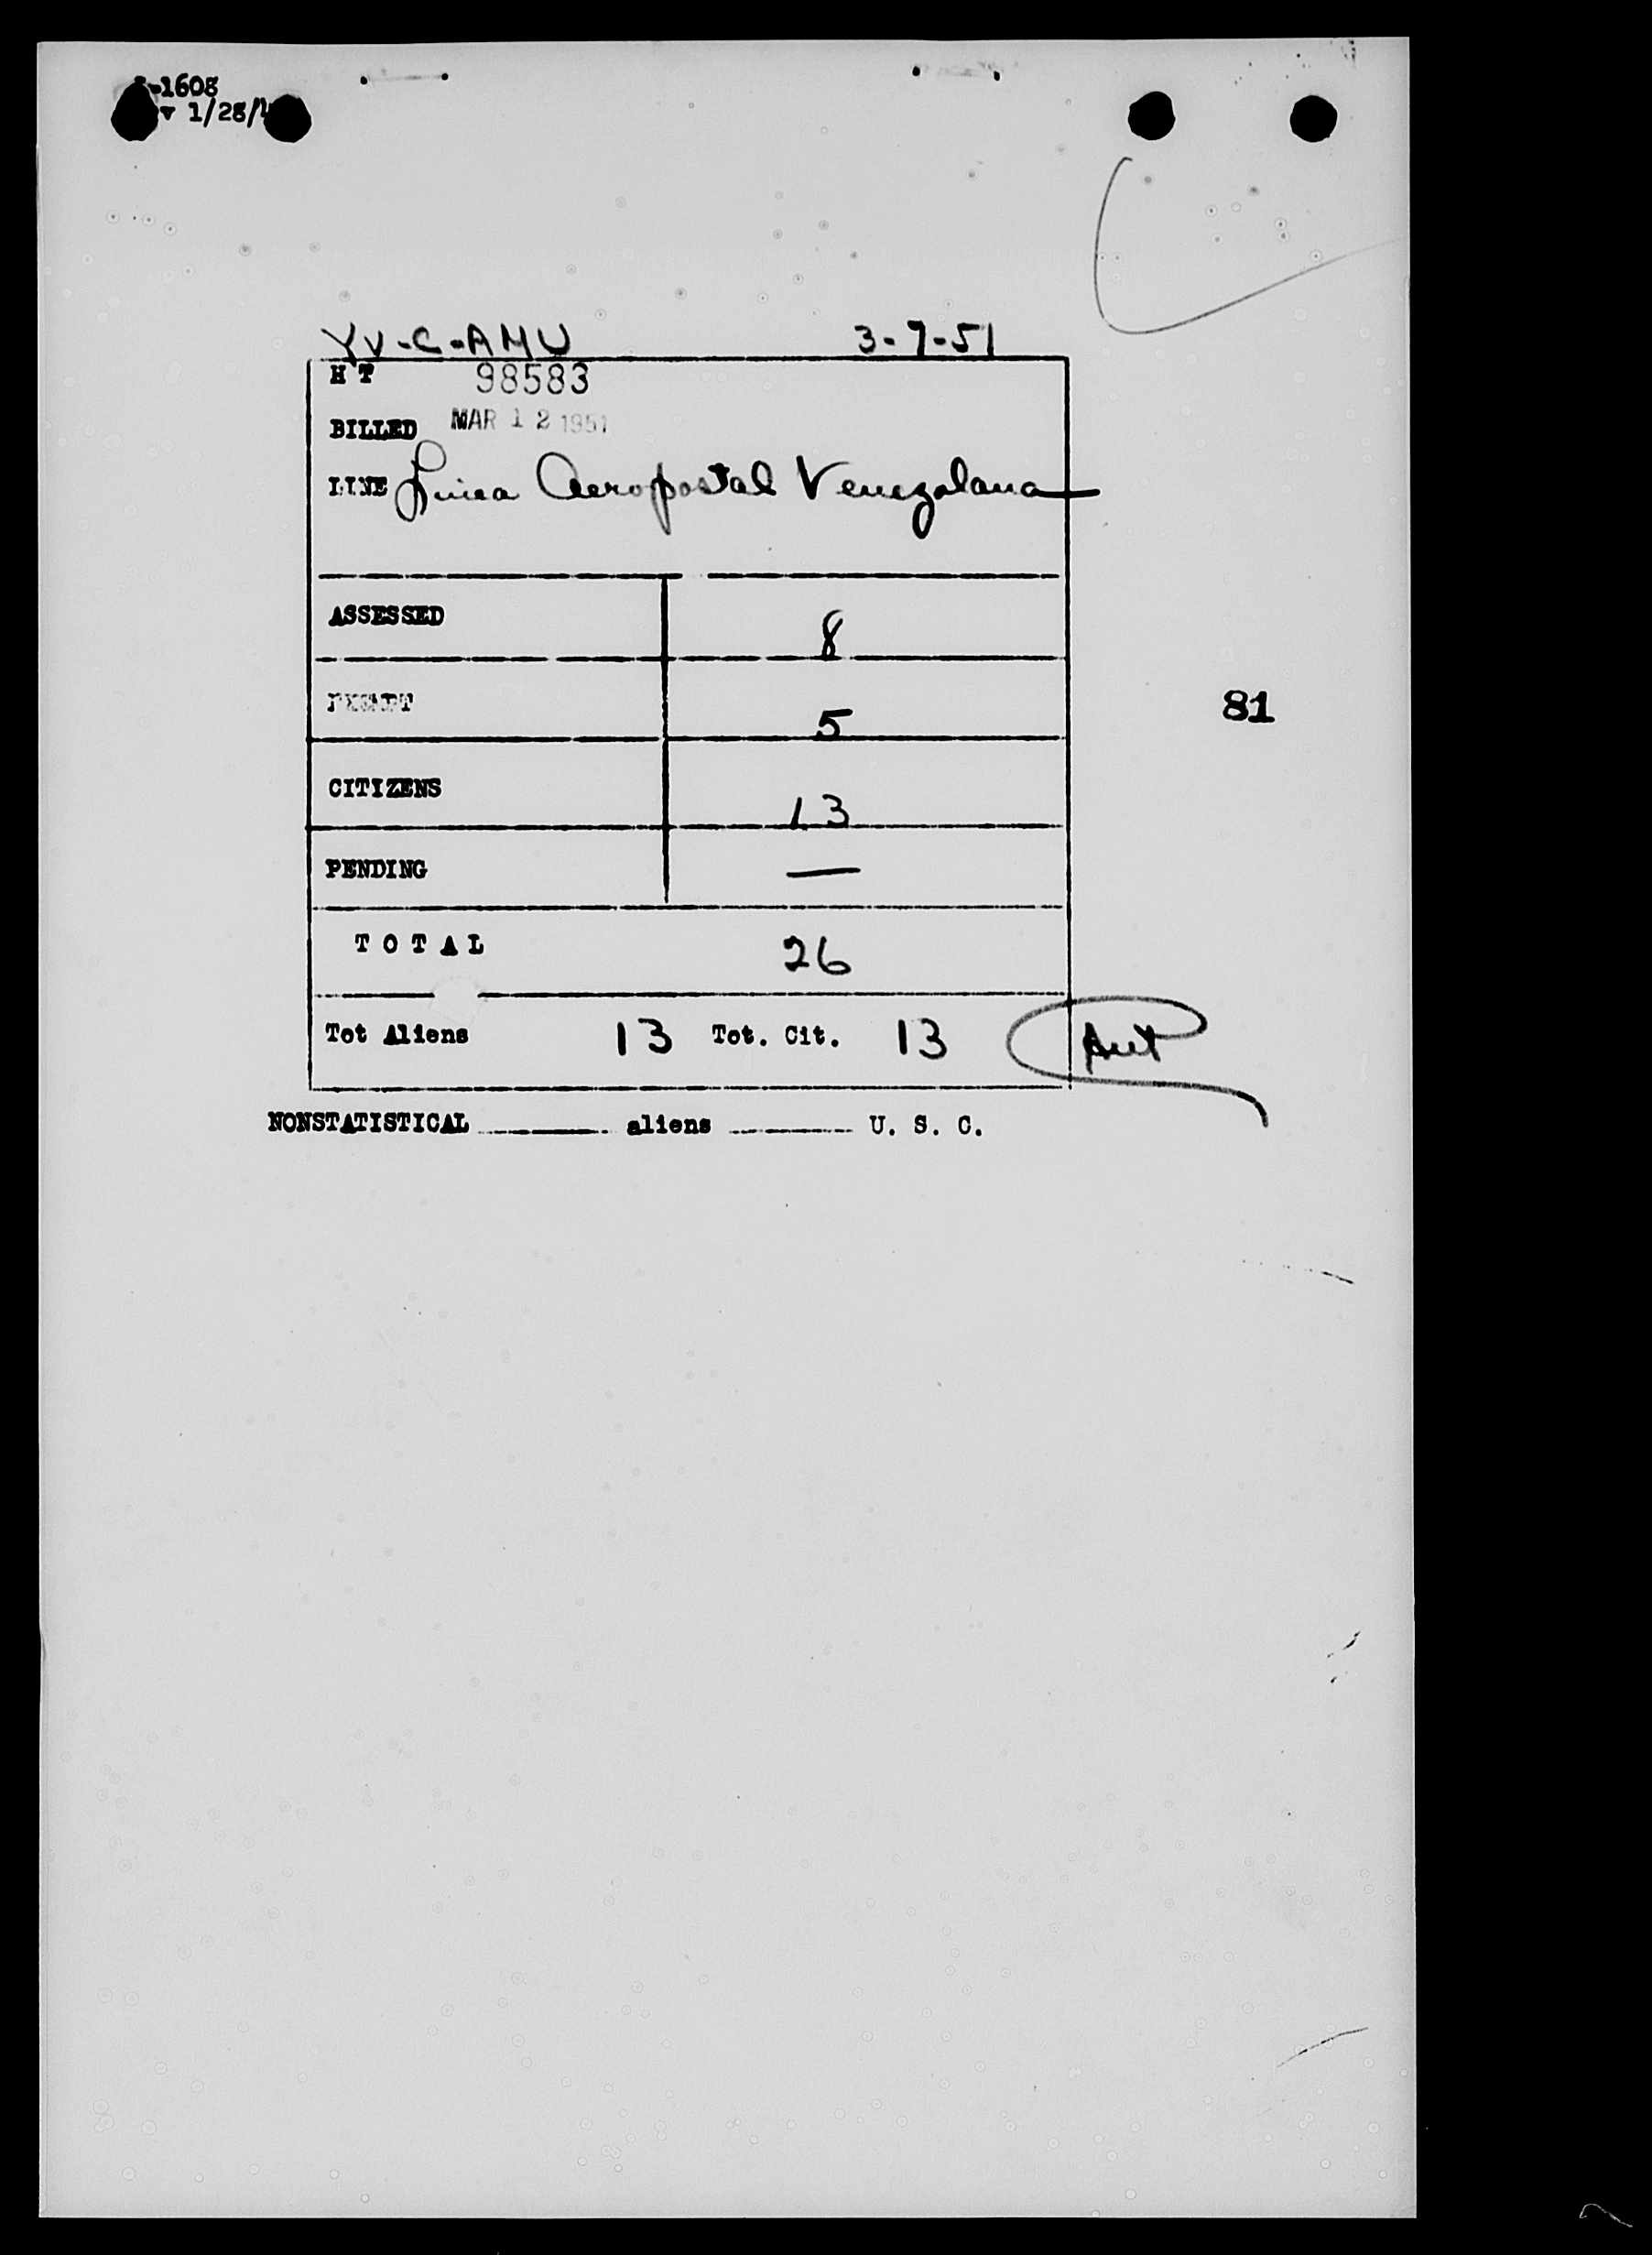 -1608
v 1/28/4
YV-C-AMU 3-7-51
H T 98583
BILLED MAR 12 1951
LINE Linea Aeropostal Venezolana
ASSESSED 8
EXEMPT 5
81
CITIZENS 13
PENDING —
TOTAL 26
Tot Aliens 13 Tot. Cit. 13
NONSTATISTICAL ______ aliens ______ U. S. C.